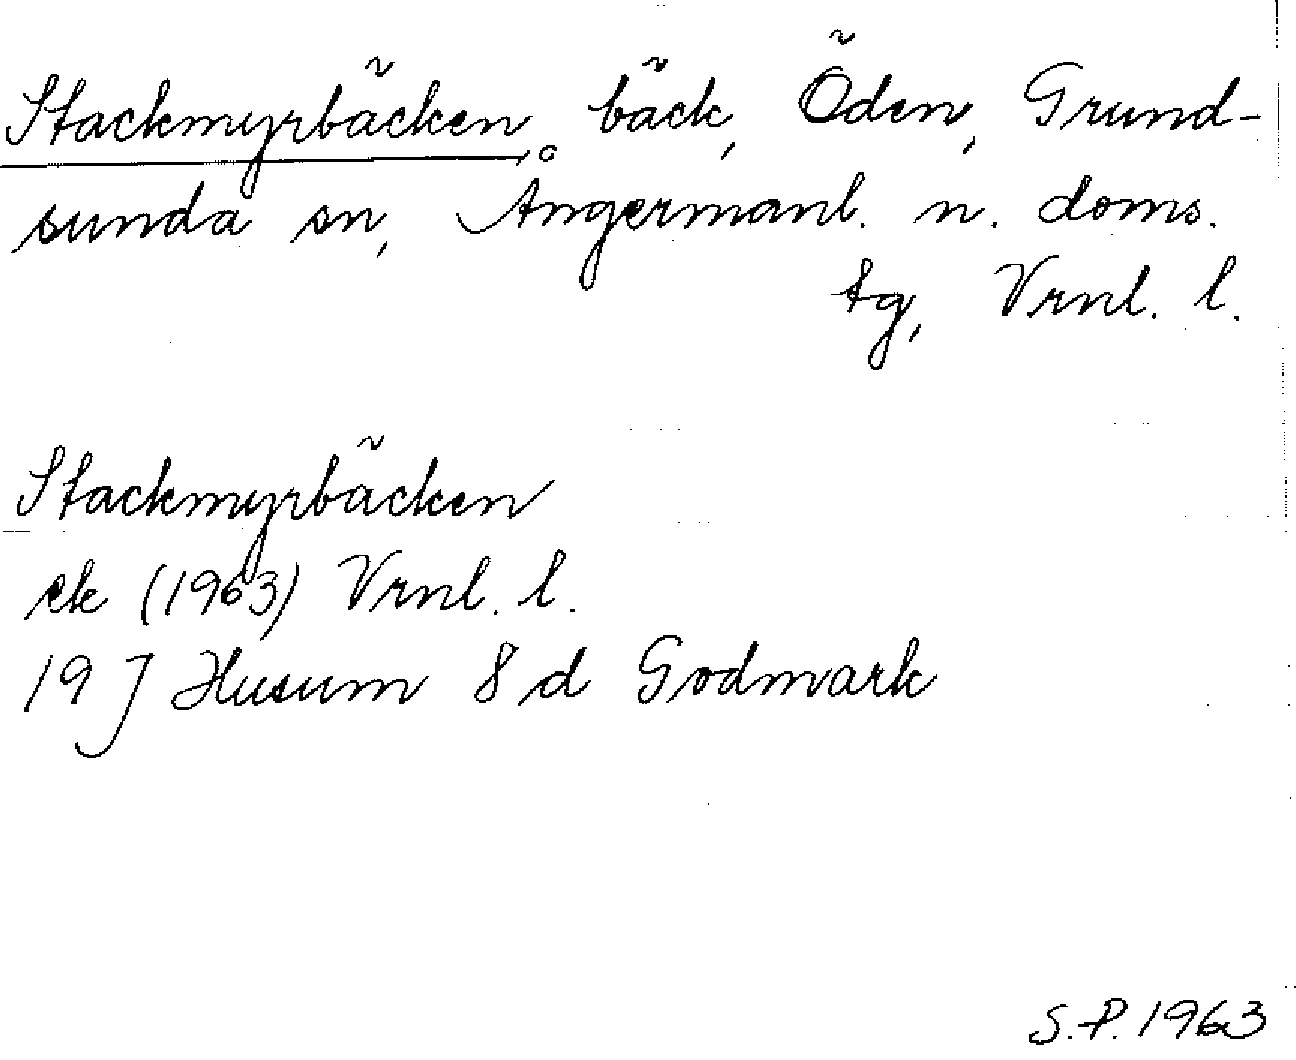 Stackmyrbäcken, bäck, Öden, Grund-
sunda sn, Ångermanl. n. doms.
tg, Vrnl. l.
Stackmyrbäcken
ek (1963) Vrnl. l.
19 J Husum 8 d Godmark
S.P. 1963